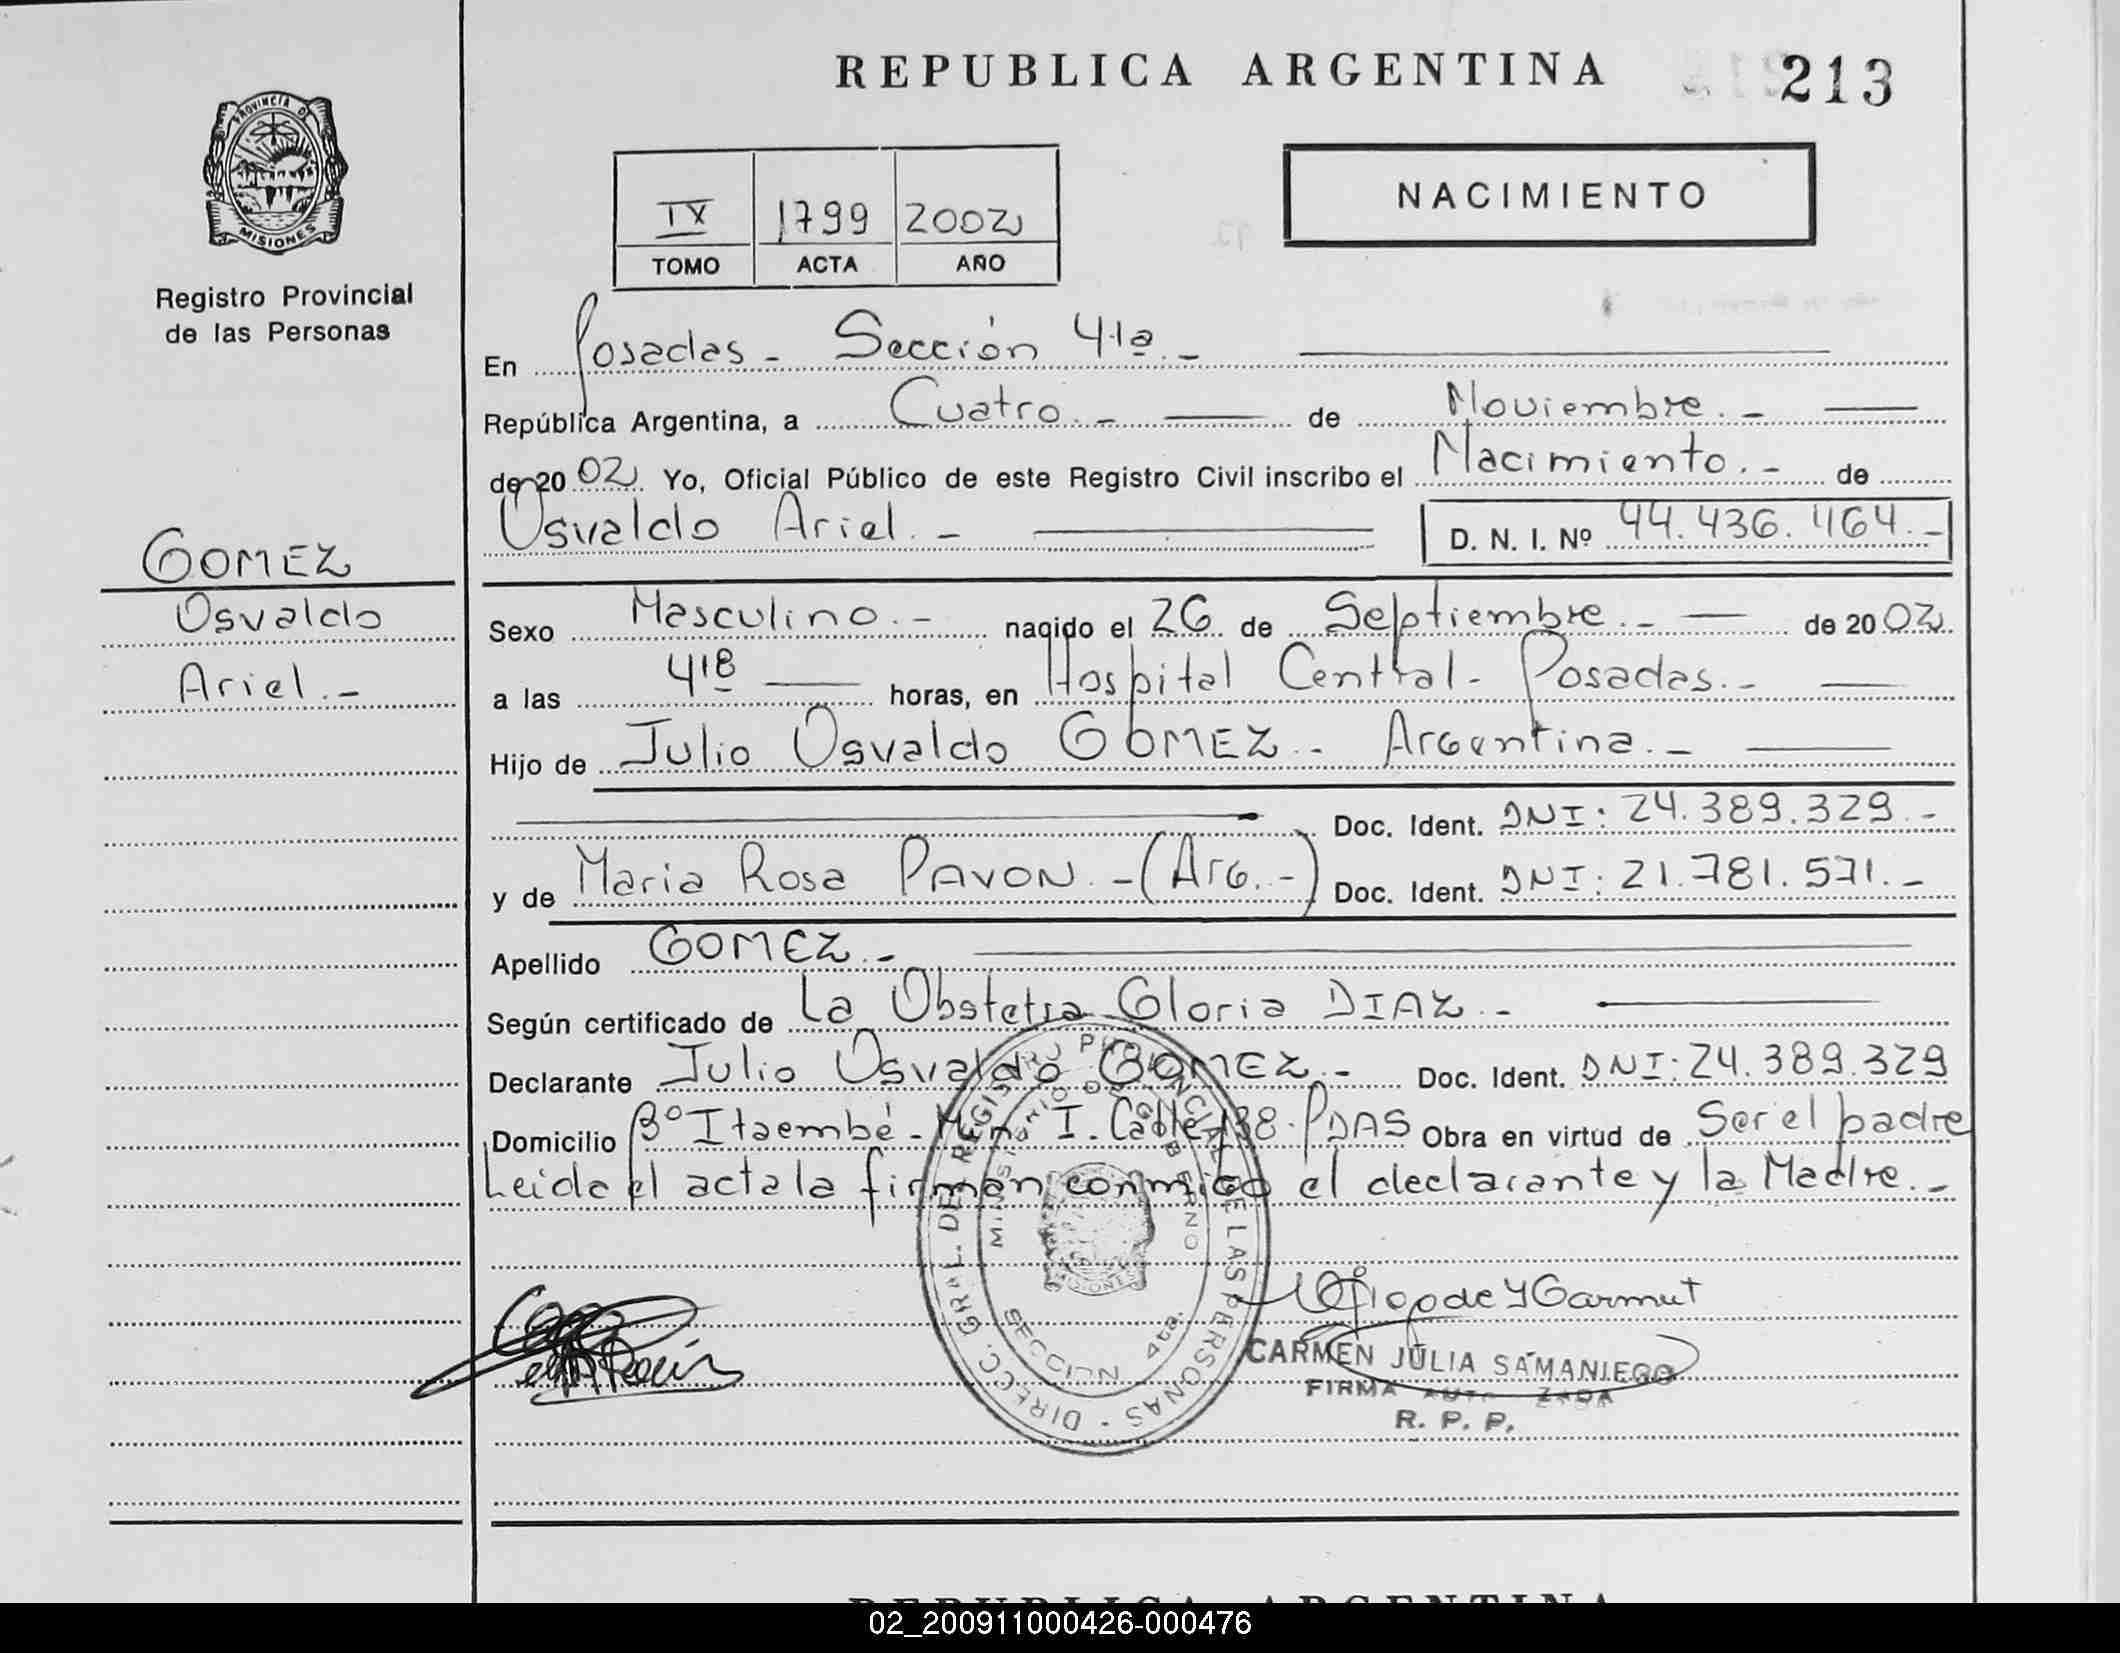 REPUBLICA ARGENTINA 213
PROVINCIA DE
MISIONES
Registro Provincial
de las Personas
NACIMIENTO
IX 1799 2002
TOMO ACTA AÑO
En Posadas - Sección 4ta. -
República Argentina, a Cuatro. - de Noviembre. -
de 2002 Yo, Oficial Público de este Registro Civil inscribo el Nacimiento. - de
Osvaldo Ariel. - D. N. I. Nº 44.436.464. -
GOMEZ
Osvaldo
Ariel. -
Sexo Masculino. - nacido el 26 de Septiembre. - de 2002
a las 4,18 horas, en Hospital Central - Posadas. -
Hijo de Julio Osvaldo GOMEZ. - Argentina. -
Doc. Ident. DNI: 24.389.329. -
y de Maria Rosa PAVON. - (Arg. -) Doc. Ident. DNI: 21.781.571. -
Apellido GOMEZ. -
Según certificado de La Obstetra Gloria DIAZ. -
Declarante Julio Osvaldo GOMEZ. - Doc. Ident. DNI: 24.389.329
Domicilio Bº Itaembé - Miní I. Calle 138. PDAS Obra en virtud de Ser el padre
Leida el acta la firman conmigo el declarante y la Madre. -
DIRECC. GRAL. DEL REGISTRO PROVINCIAL DE LAS PERSONAS
MINISTERIO DE GOBIERNO
SECCION 4ta.
MISIONES
CARMEN JULIA SAMANIEGO
FIRMA AUTORIZADA
R. P. P.
REPUBLICA ARGENTINA
02_200911000426-000476